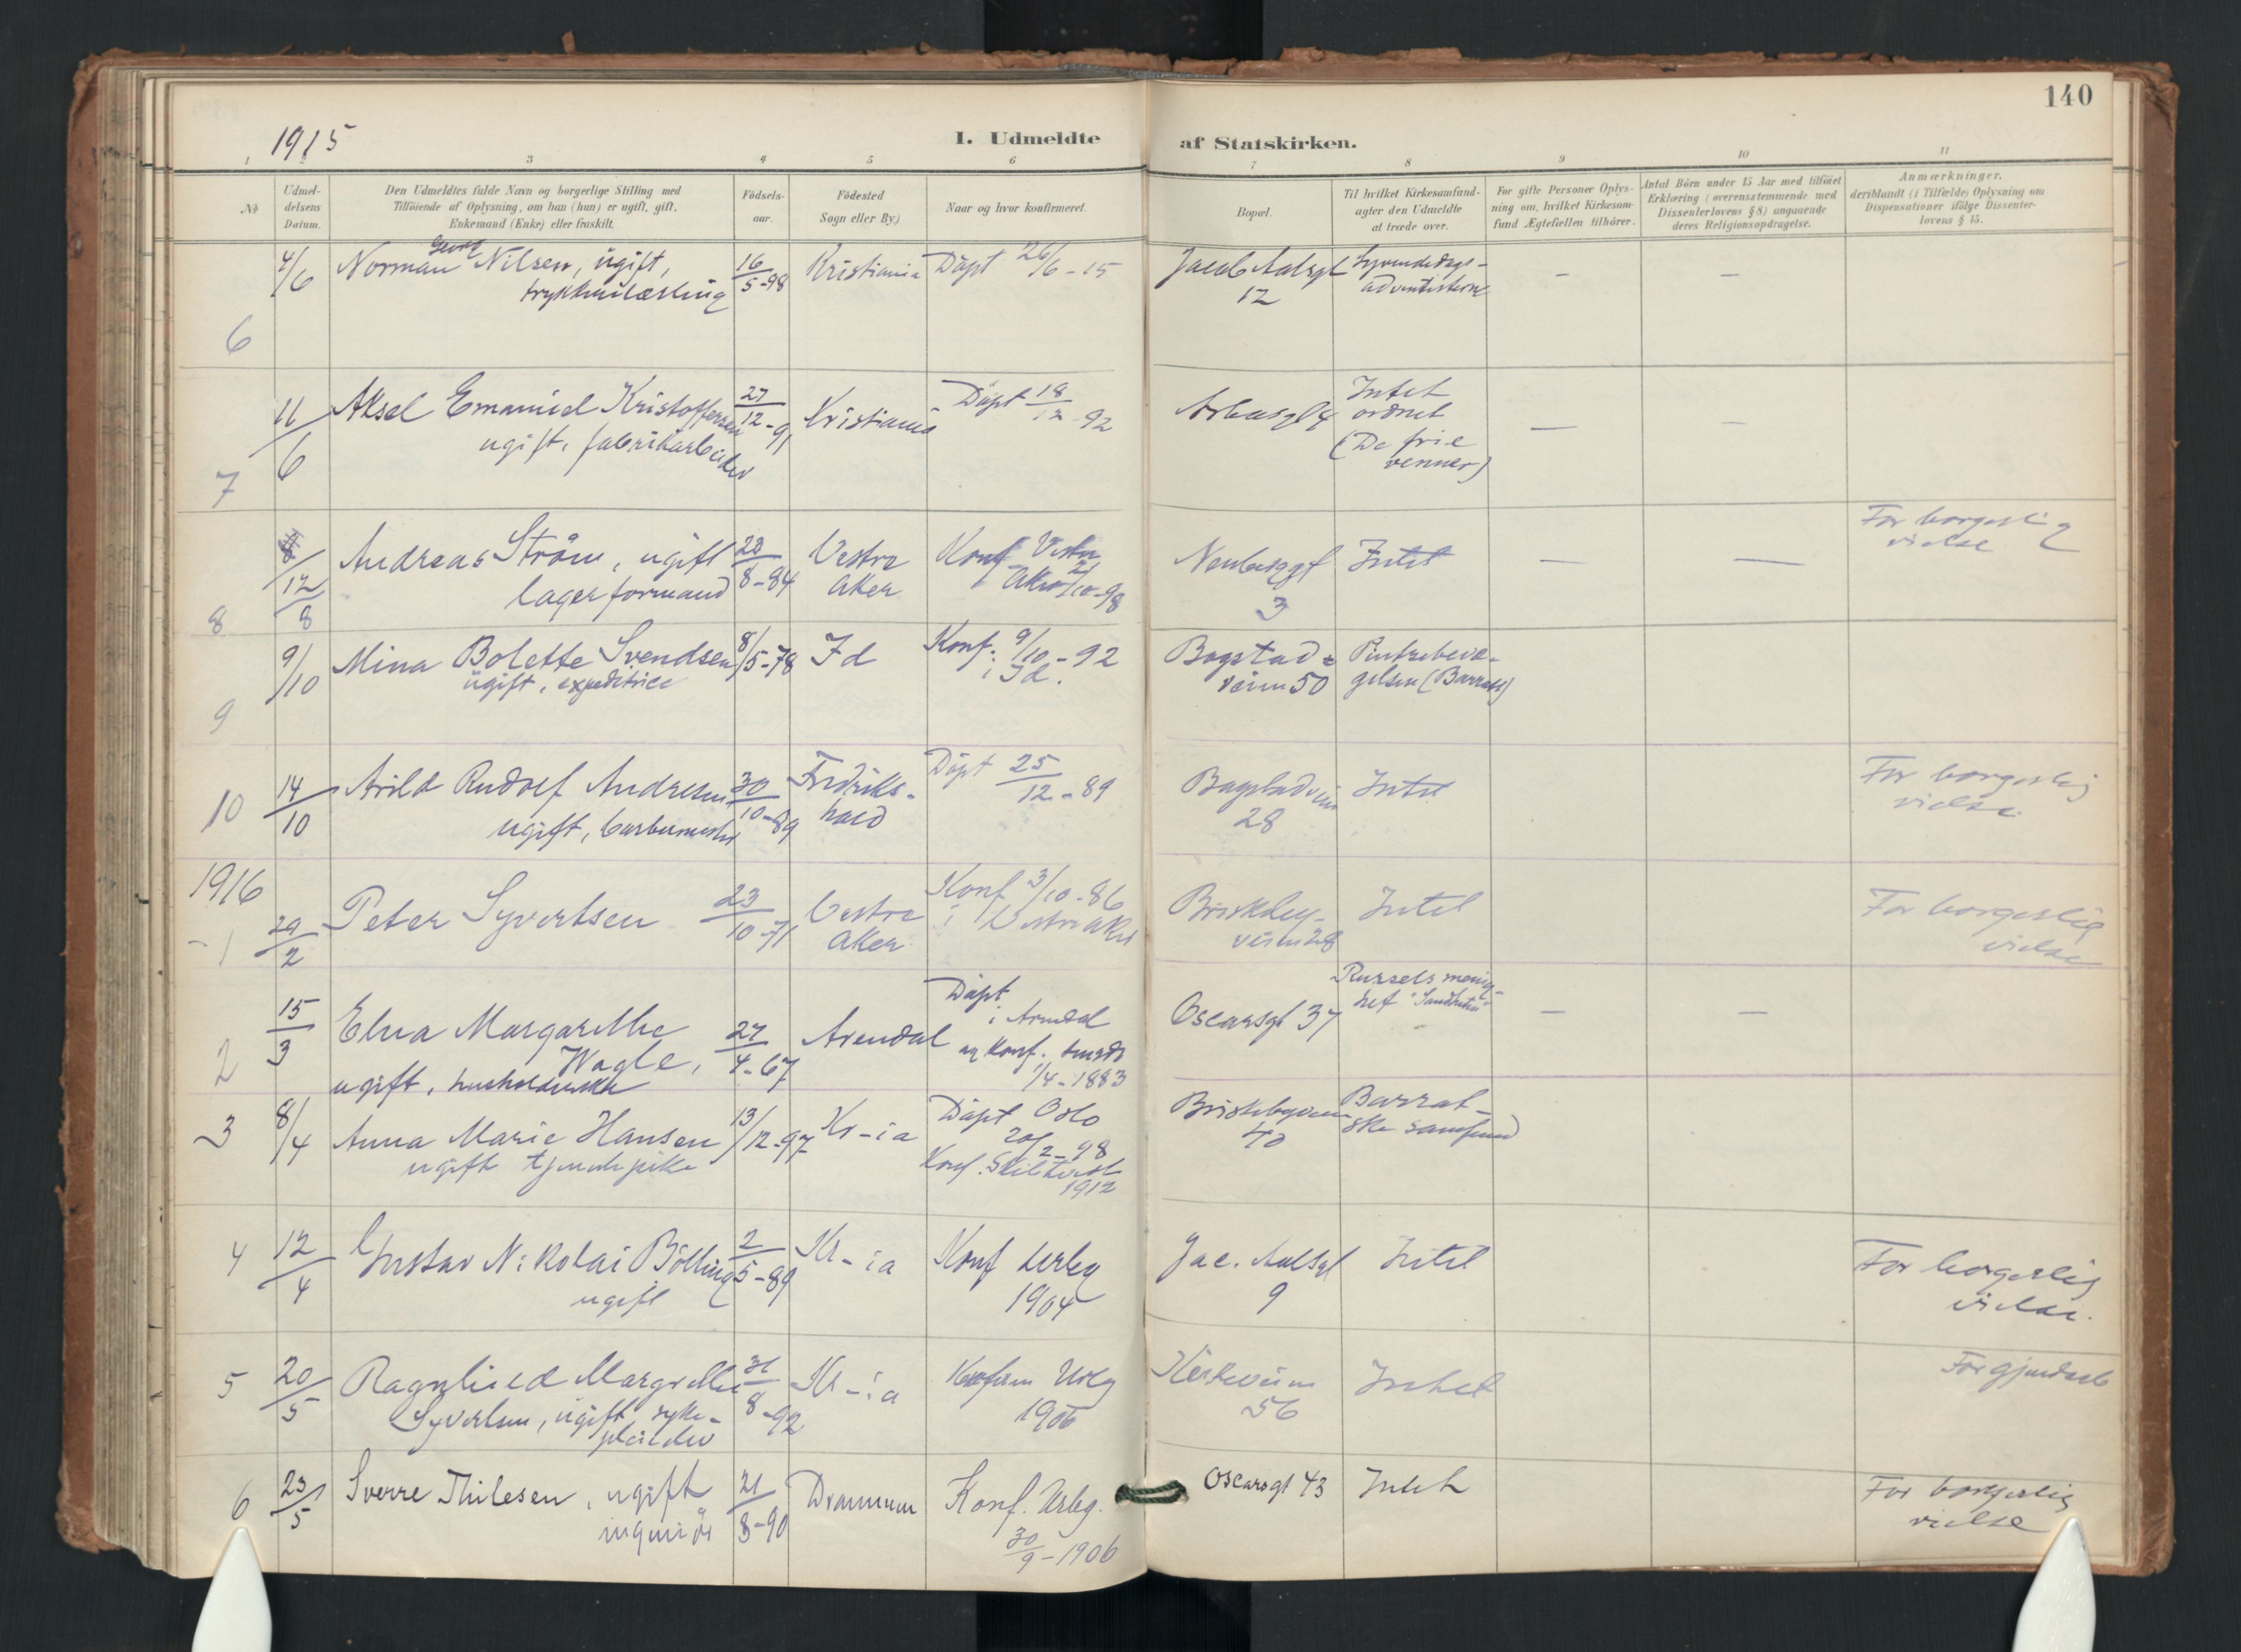 140
1915
1. Udmeldte af Statskirken.
1 2 3 4 5 6 7 8 9 10 11
№
Udmel-
delsens
Datum.
Den Udmeldtes fulde Navn og borgerlige Stilling med
Tilföiende af Oplysning, om han (hun) er ugift, gift,
Enkemand (Enke) eller fraskilt.
Födsels-
aar.
Födested
Sogn eller By.)
Naar og hvor konfirmeret.
Bopæl.
Til hvilket Kirkesamfund-
agter den Udmeldte
at træde over.
For gifte Personer Oplys-
ning om, hvilket Kirkesam-
fund Ægtefællen tilhörer.
Antal Börn under 15 Aar med tilföiet
Erklæring (overensstemmende med
Dissenterlovens § 8) angaaende
deres Religionsopdragelse.
Anmærkninger,
deriblandt (i Tilfælde) Oplysning om
Dispensationer ifölge Dissenter-
lovens § 15.
6
4/6
Norman Georg Nilsen, ugift,
16/5-98
Kristiania
Döpt 26/6-15
Jacob Aalsgt
12
Syvendedags-
adventisterne
— —
7
11/6
Aksel Emanuel Kristoffersen
ugift, fabrikarbeider
27/12-91
Kristiania
Döpt 18/12-92
4
Intet
ordnet
(De frie
venner)
— —
8
12/8
Andreas Ström, ugift
lagerformand
28/8-84
Vestre
Aker
Konf. Vestre
Aker 2/10-98
3
Intet
— —
For borgerlig
vielse
9
9/10
Mina Bolette Svendsen
ugift, expeditrice
8/5-78
Id
Konf. 9/10-92
i Id.
Bogstad-
veien 50
Pintsebevæ-
gelsen (Barratt)
10
14/10
Arild Rudolf Andresen
ugift, barbermester
30/10-89
Fredriks-
hald
Döpt 25/12-89
Bogstadveien
28
Intet
For borgerlig
vielse.
1916
1
29/2
Peter Syvertsen
23/10-71
Vestre
Aker
Konf 3/10-86
i Vestre Aker
Briskeby-
veien 28
Intet
For borgerlig
vielse
2
15/3
Elna Margarethe
Wagle,
ugift, husholderske
27/4-67
Arendal
Döpt
i Arendal
og Konf.
1/4-1883
Oscarsgt 37
Russels menig-
het
— —
3
8/4
Anna Marie Hansen
ugift tjenestepike
13/12-97
Kr-ia
Döpt Oslo
20/2-98
Konf.
1912
Briskebyveien
40
Barrat-
ske samfund
4
12/4
Gustav Nikolai Bölling
ugift
2/5-89
Kr-ia
Konf Urbg
1904
Jac. Aalsgt
9
Intet
For borgerlig
vielse.
5
20/5
Ragnhild Margrethe
Syvertsen, ugift, syke-
pleierske
31/8-92
Kr-ia
Konfirm Urbg
1906
Kirkeveien
56
Intet
6
23/5
Sverre Thilesen, ugift
ingeniör
21/8-90
Drammen
Konf. Urbg.
30/9-1906
Oscarsgt 43
Intet
For borgerlig
vielse